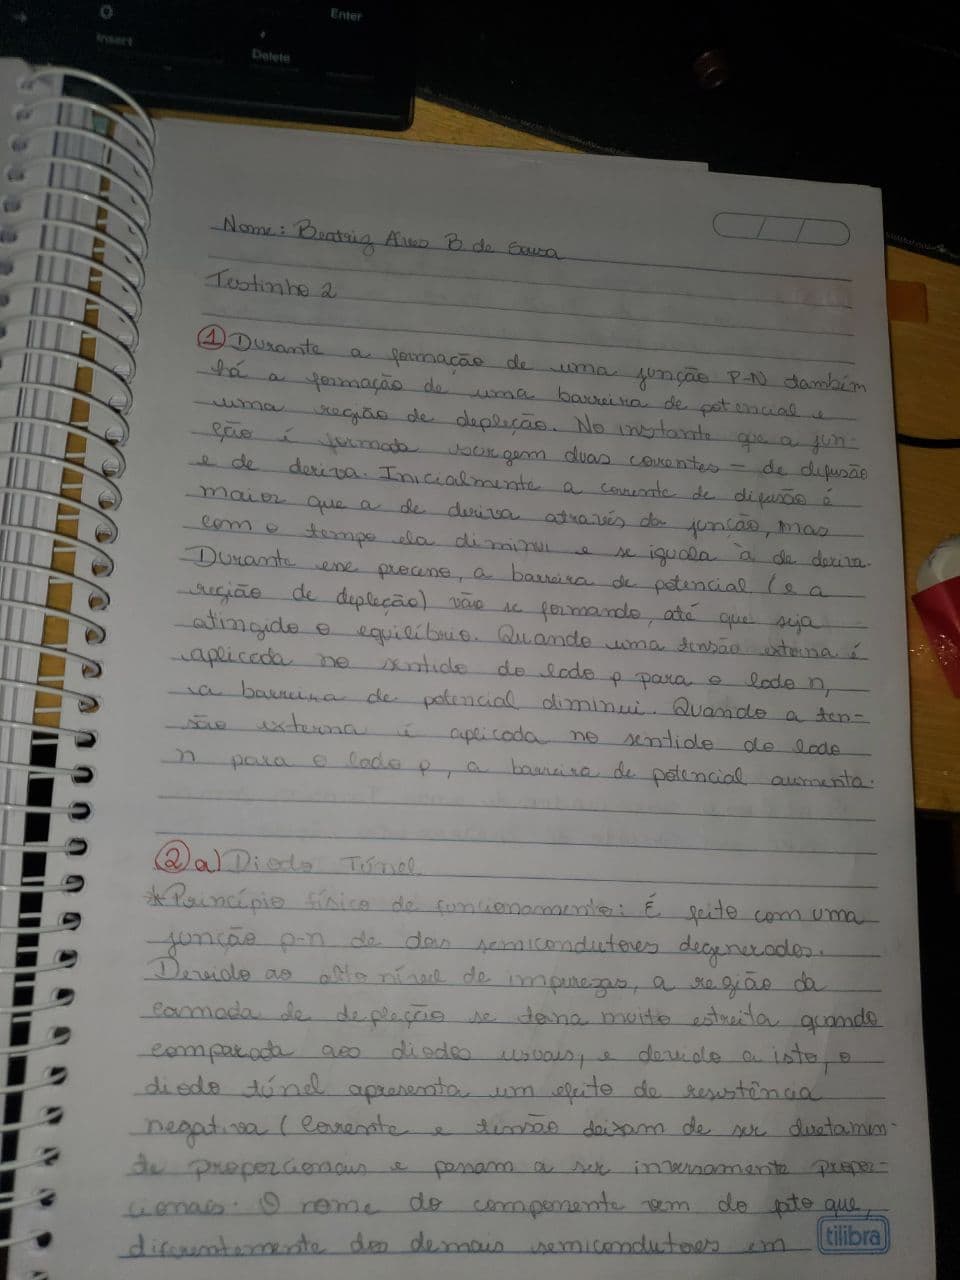 Insert
Enter
Delete
Nome: Beatriz Alves B de Sousa
Testinho 2
1 Durante a formação de uma junção P-N também
há a formação de uma barreira de potencial e
uma região de depleção. No instante que a jun-
ção é formada surgem duas correntes - de difusão
e de deriva. Inicialmente a corrente de difusão é
maior que a de deriva através da junção, mas
com o tempo ela diminui e se iguala à de deriva.
Durante esse processo, a barreira de potencial (e a
região de depleção) vão se formando, até que seja
atingido o equilíbrio. Quando uma tensão externa é
aplicada no sentido do lado p para o lado n,
a barreira de potencial diminui. Quando a ten-
são externa é aplicada no sentido do lado
n para o lado p, a barreira de potencial aumenta.
2 a) Diodo Túnel
*Princípio físico de funcionamento: É feito com uma
junção p-n de dois semicondutores degenerados.
Devido ao alto nível de impurezas, a região da
camada de depleção se torna muito estreita quando
comparada aos diodos usuais, e devido a isto, o
diodo túnel apresenta um efeito de resistência
negativa (corrente e tensão deixam de ser diretamen-
te proporcionais e passam a ser inversamente propor-
cionais. O nome do componente vem do fato que,
diferentemente dos demais semicondutores em
tilibra